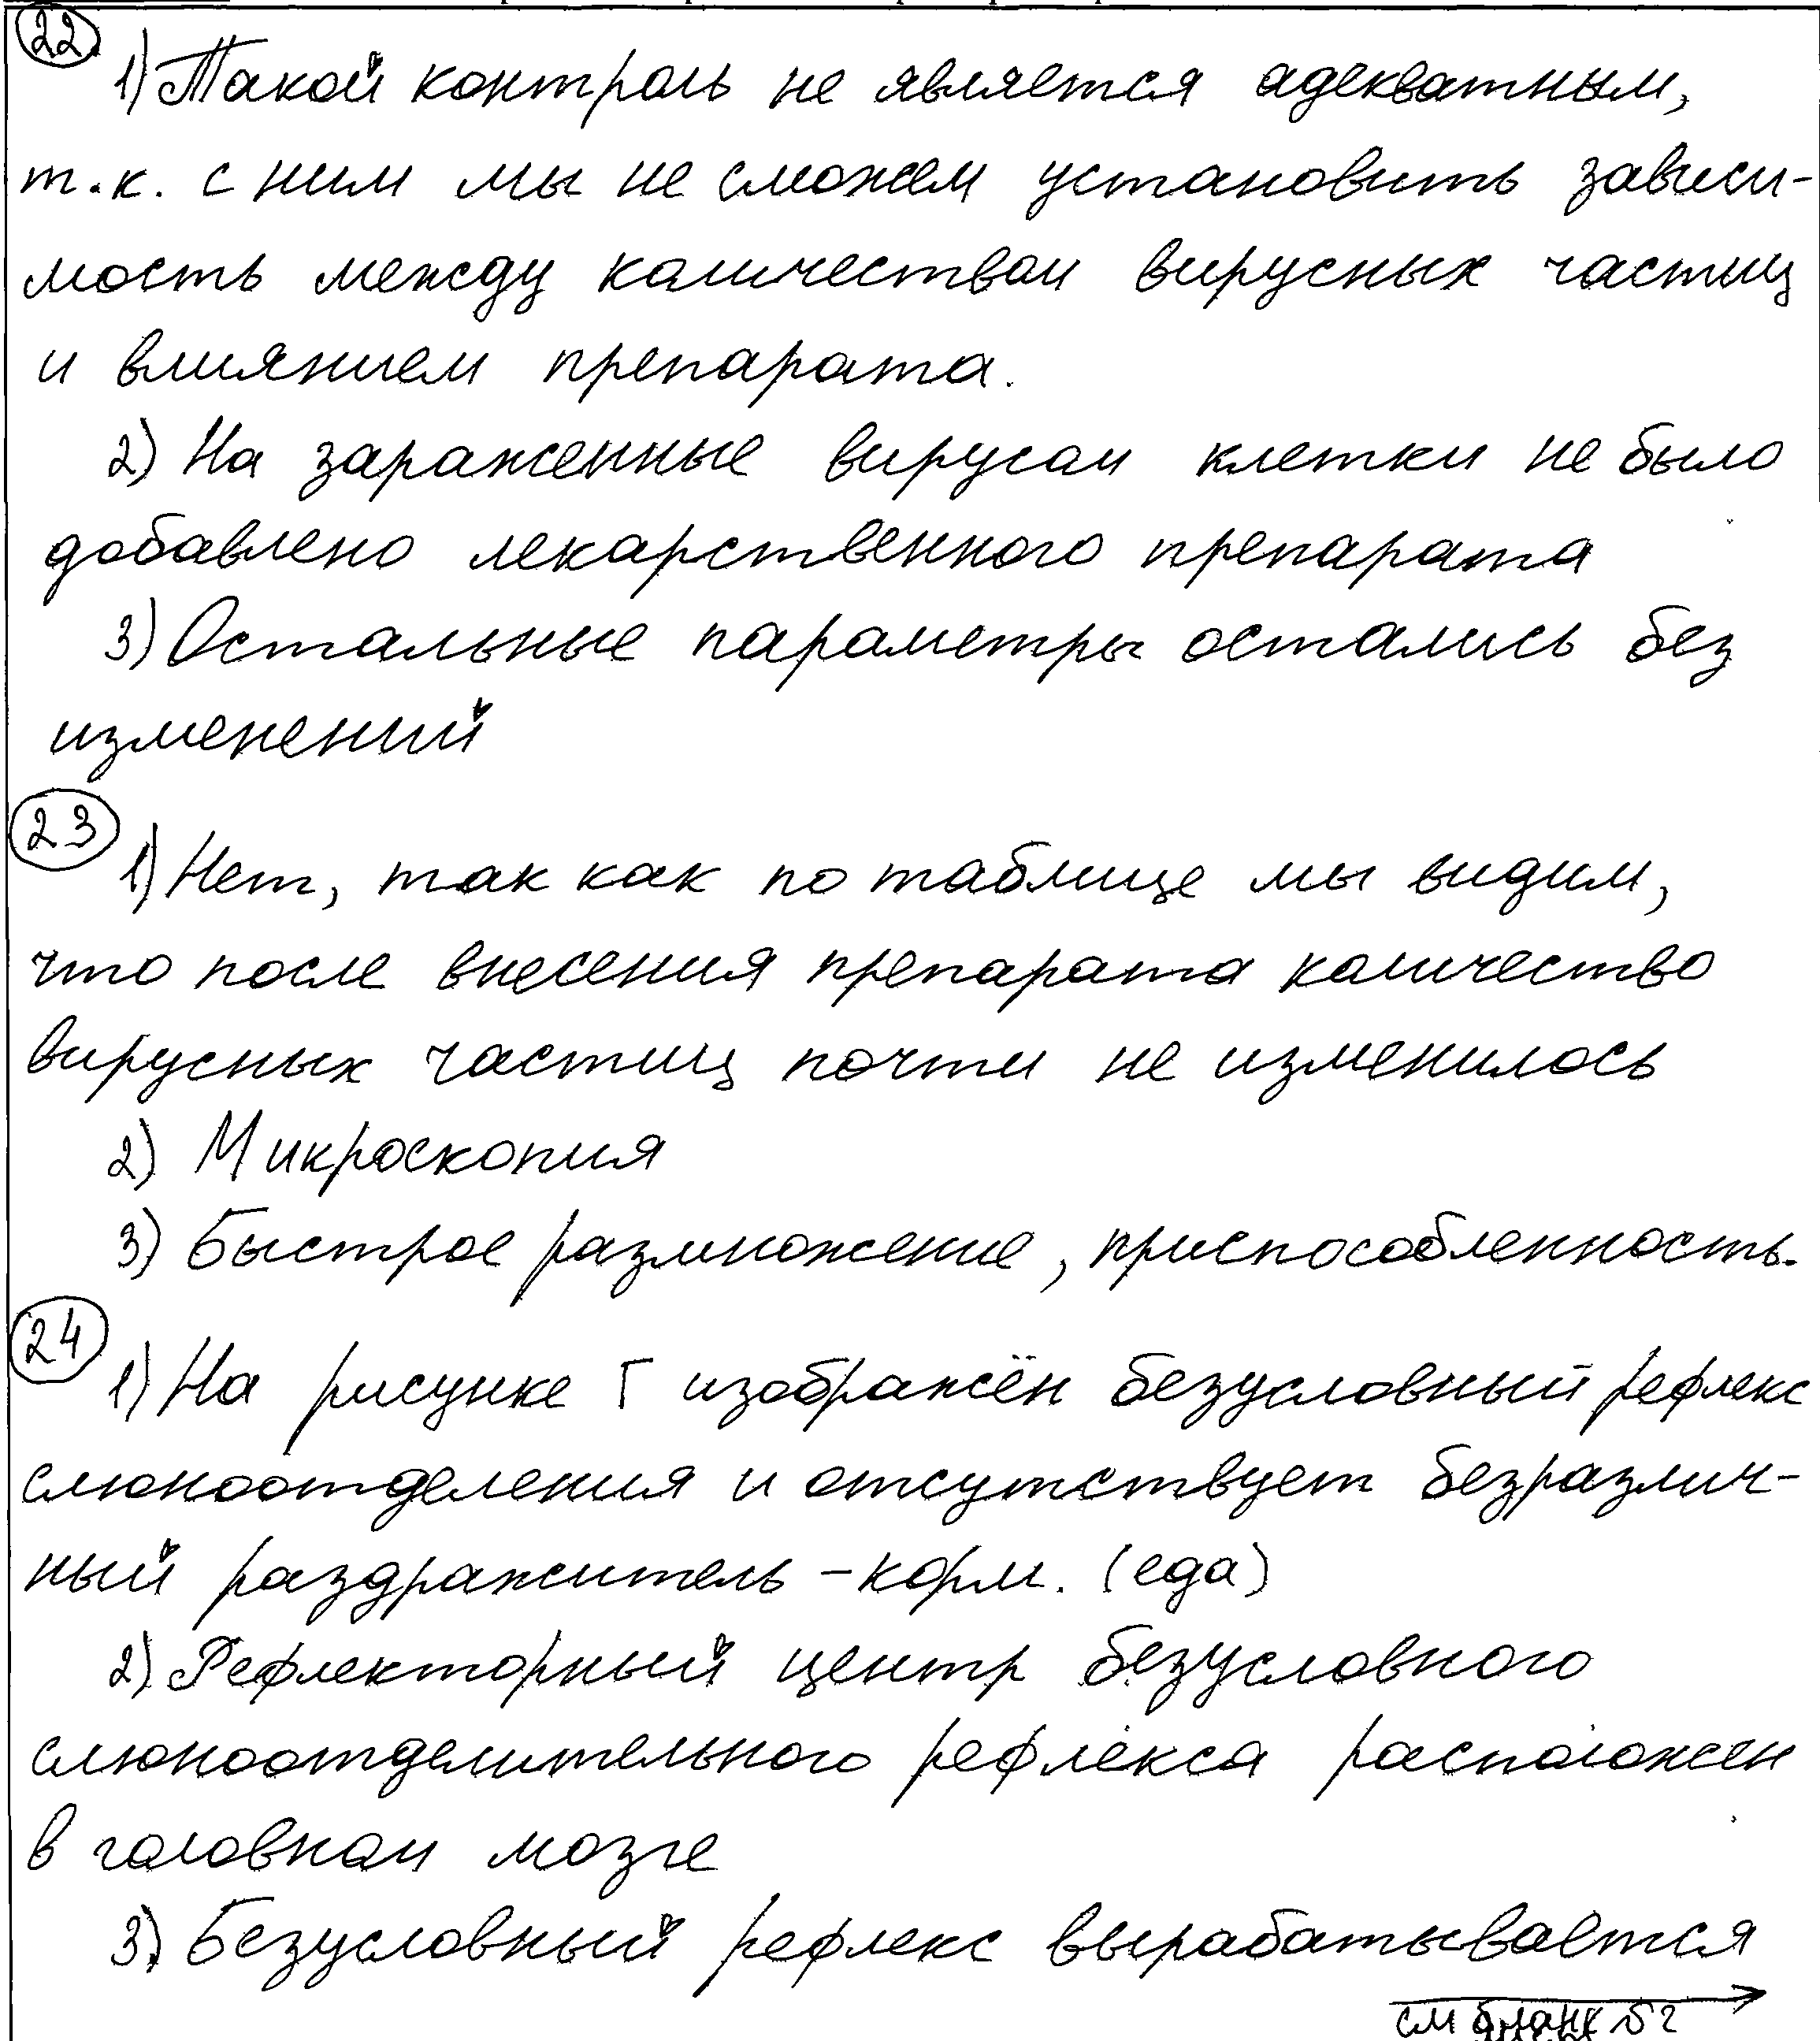 22
1) Такой контроль не является адекватным,
т.к. с ним мы не сможем установить зависи-
мость между количеством вирусных частиц
и влиянием препарата.
2) На зараженные вирусом клетки не было
добавлено лекарственного препарата
3) Остальные параметры остались без
изменений
23
1) Нет, так как по таблице мы видим,
что после внесения препарата количество
вирусных частиц почти не изменилось
2) Микроскопия
3) Быстрое размножение, приспособленность.
24
1) На рисунке Г изображён безусловный рефлекс
слюноотделения и отсутствует безразлич-
ный раздражитель - корм. (еда)
2) Рефлекторный центр безусловного
слюноотделительного рефлекса расположен
в головном мозге
3) Безусловный рефлекс вырабатывается
см бланк №2